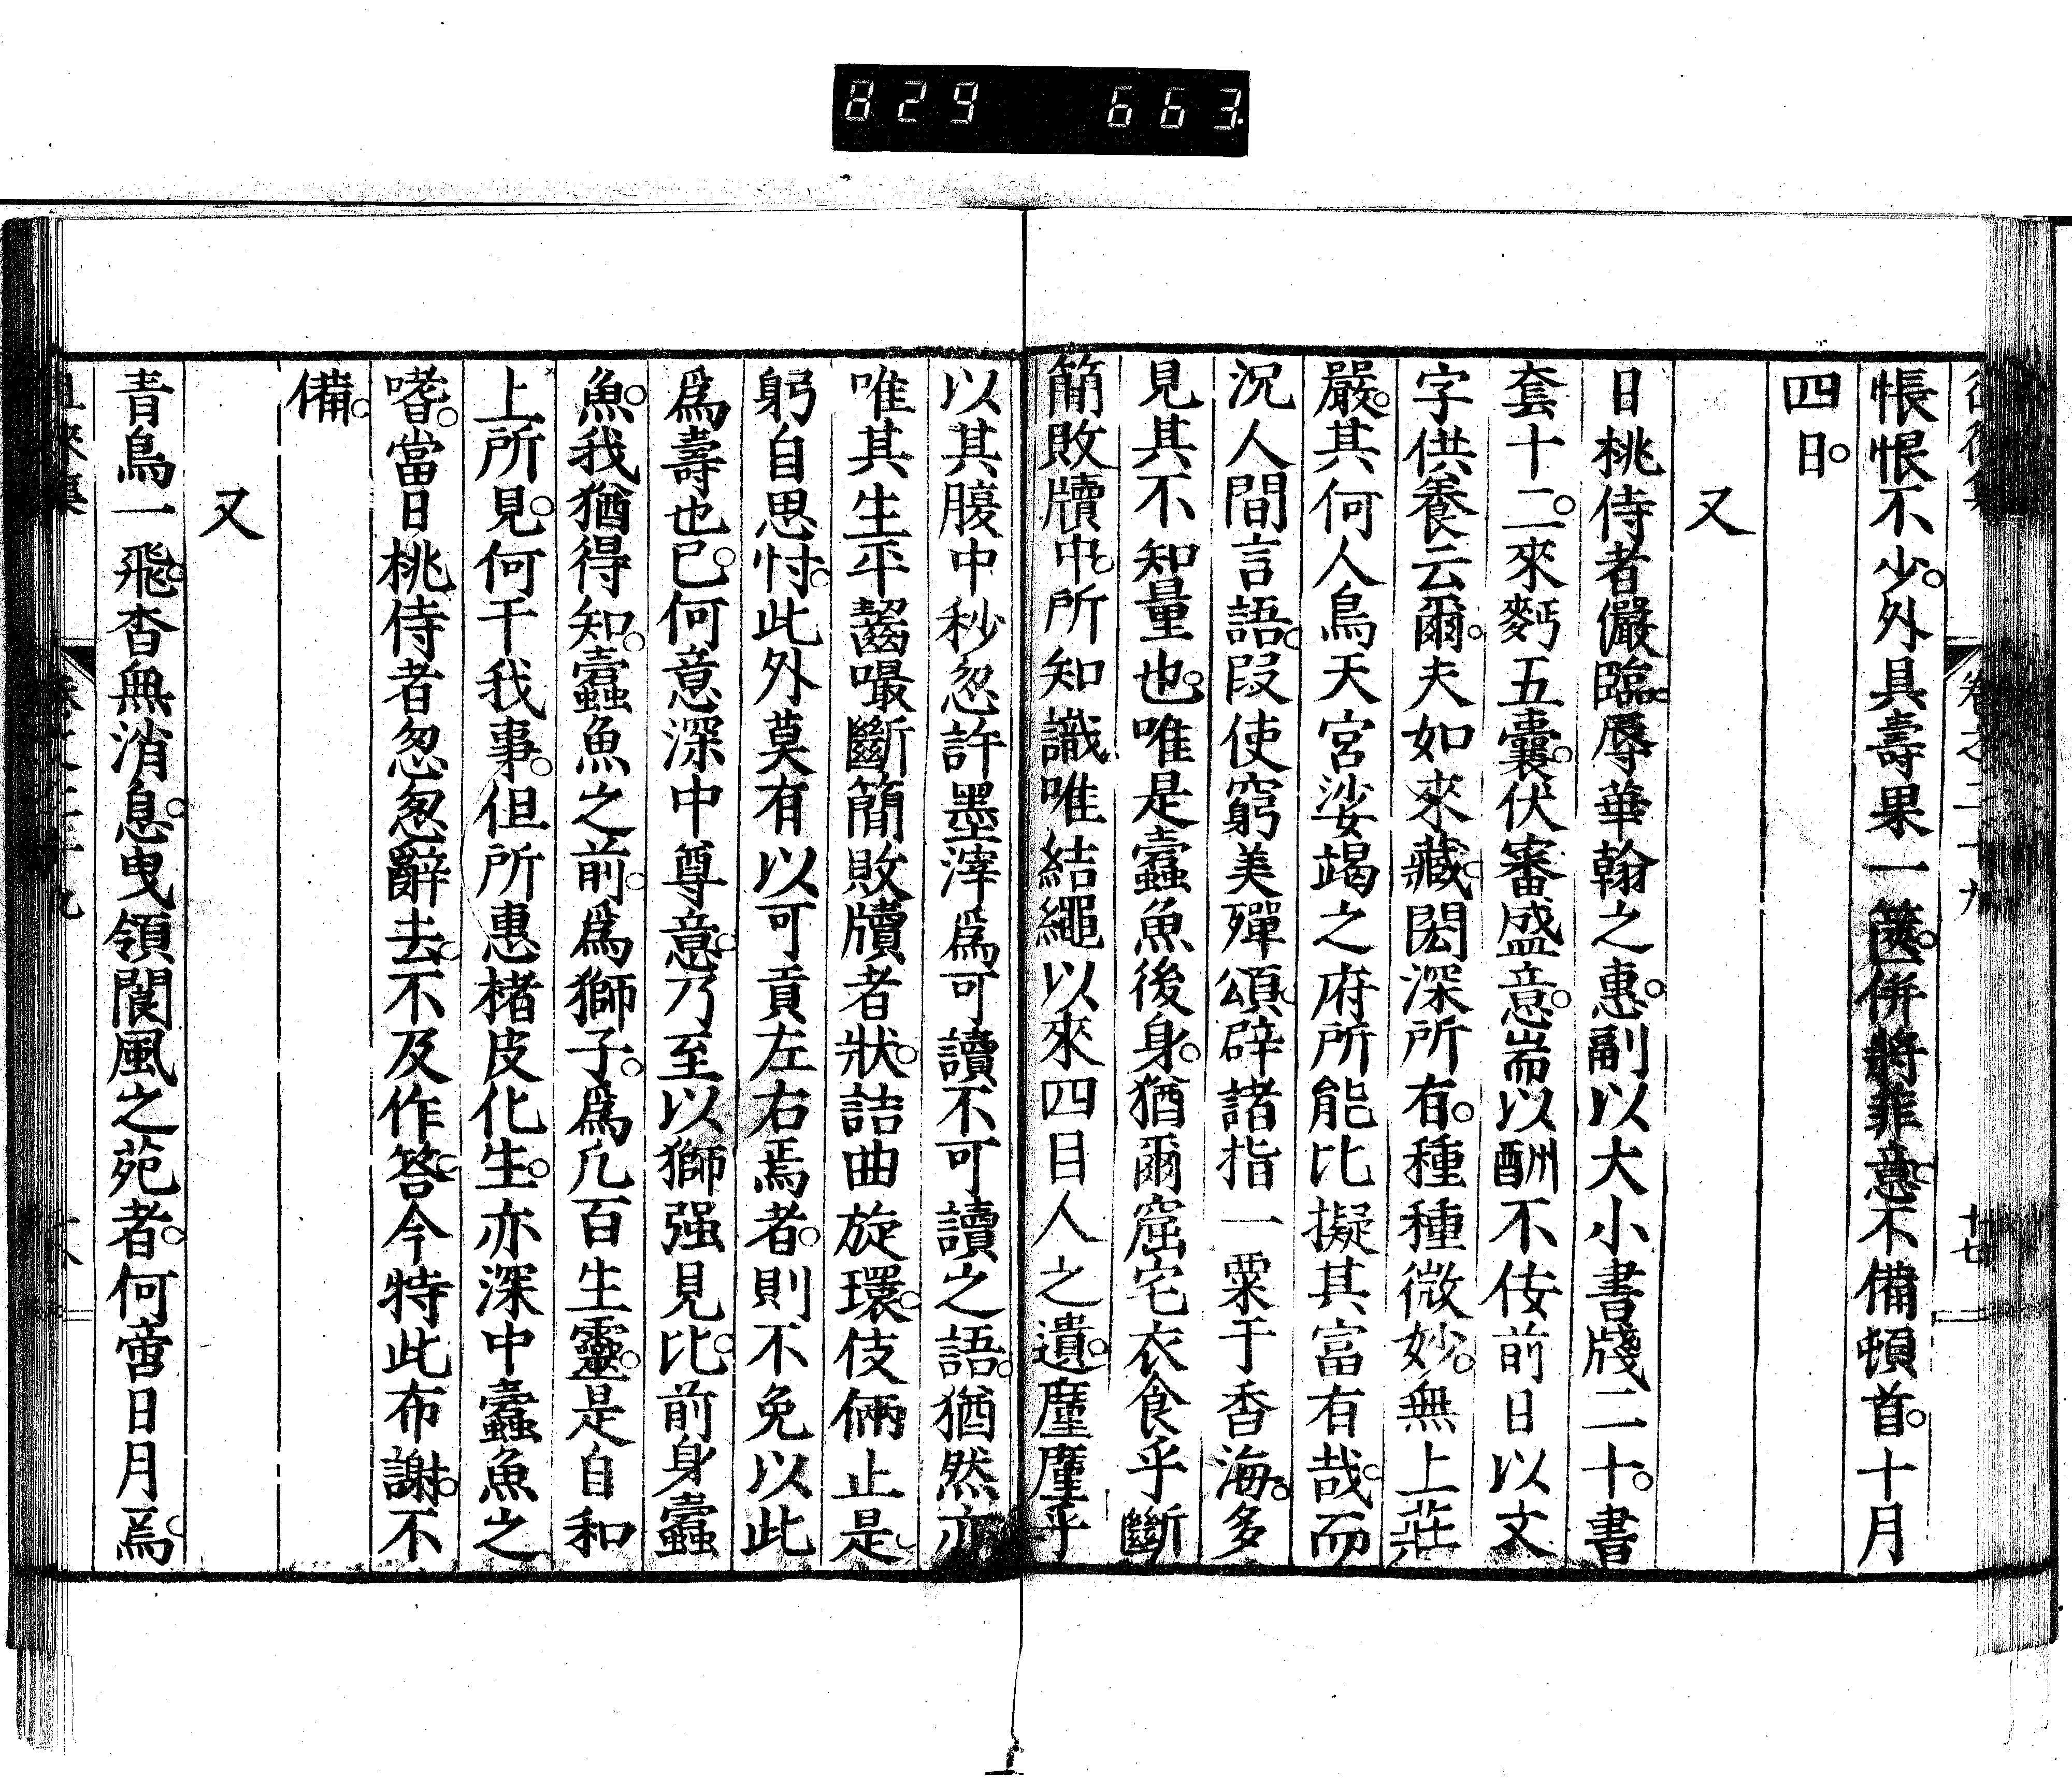 829 663
悵恨不少。外具壽果一篋。併將菲意。不備頓首。十月
四日。
又
日桃侍者儼臨。辱華翰之惠。副以大小書牋二十。書
套十二。來麪五囊。伏審盛意。耑以酬不佞前日以文
字供養云爾。夫如來藏。閎深所有。種種微妙。無上莊
嚴。其何人鳥天宮娑竭之府所能比擬其富有哉。而
況人間言語。段使窮美殫頌。辟諸指一粟于香海。多
見其不知量也。唯是蠹魚後身。猶爾窟宅衣食乎斷
簡敗牘中。所知識唯結繩以來四目人之遺。塵塵乎
以其腹中秒忽許墨滓爲可讀不可讀之語。猶然亦
唯其生平齧嘬斷簡敗牘者狀。詰曲旋環。伎倆止是。
躬自思忖。此外莫有以可貢左右焉者。則不免以此
爲壽也已。何意深中尊意。乃至以獅强見比。前身蠹
魚。我猶得知。蠹魚之前。爲獅子。爲凡百生靈。是自和
上所見。何干我事。但所惠楮皮化生。亦深中蠹魚之
嗜。當日桃侍者怱怱辭去。不及作答。今特此布謝。不
備。
又
青鳥一飛。杳無消息。曳領閬風之苑者。何啻日月焉。